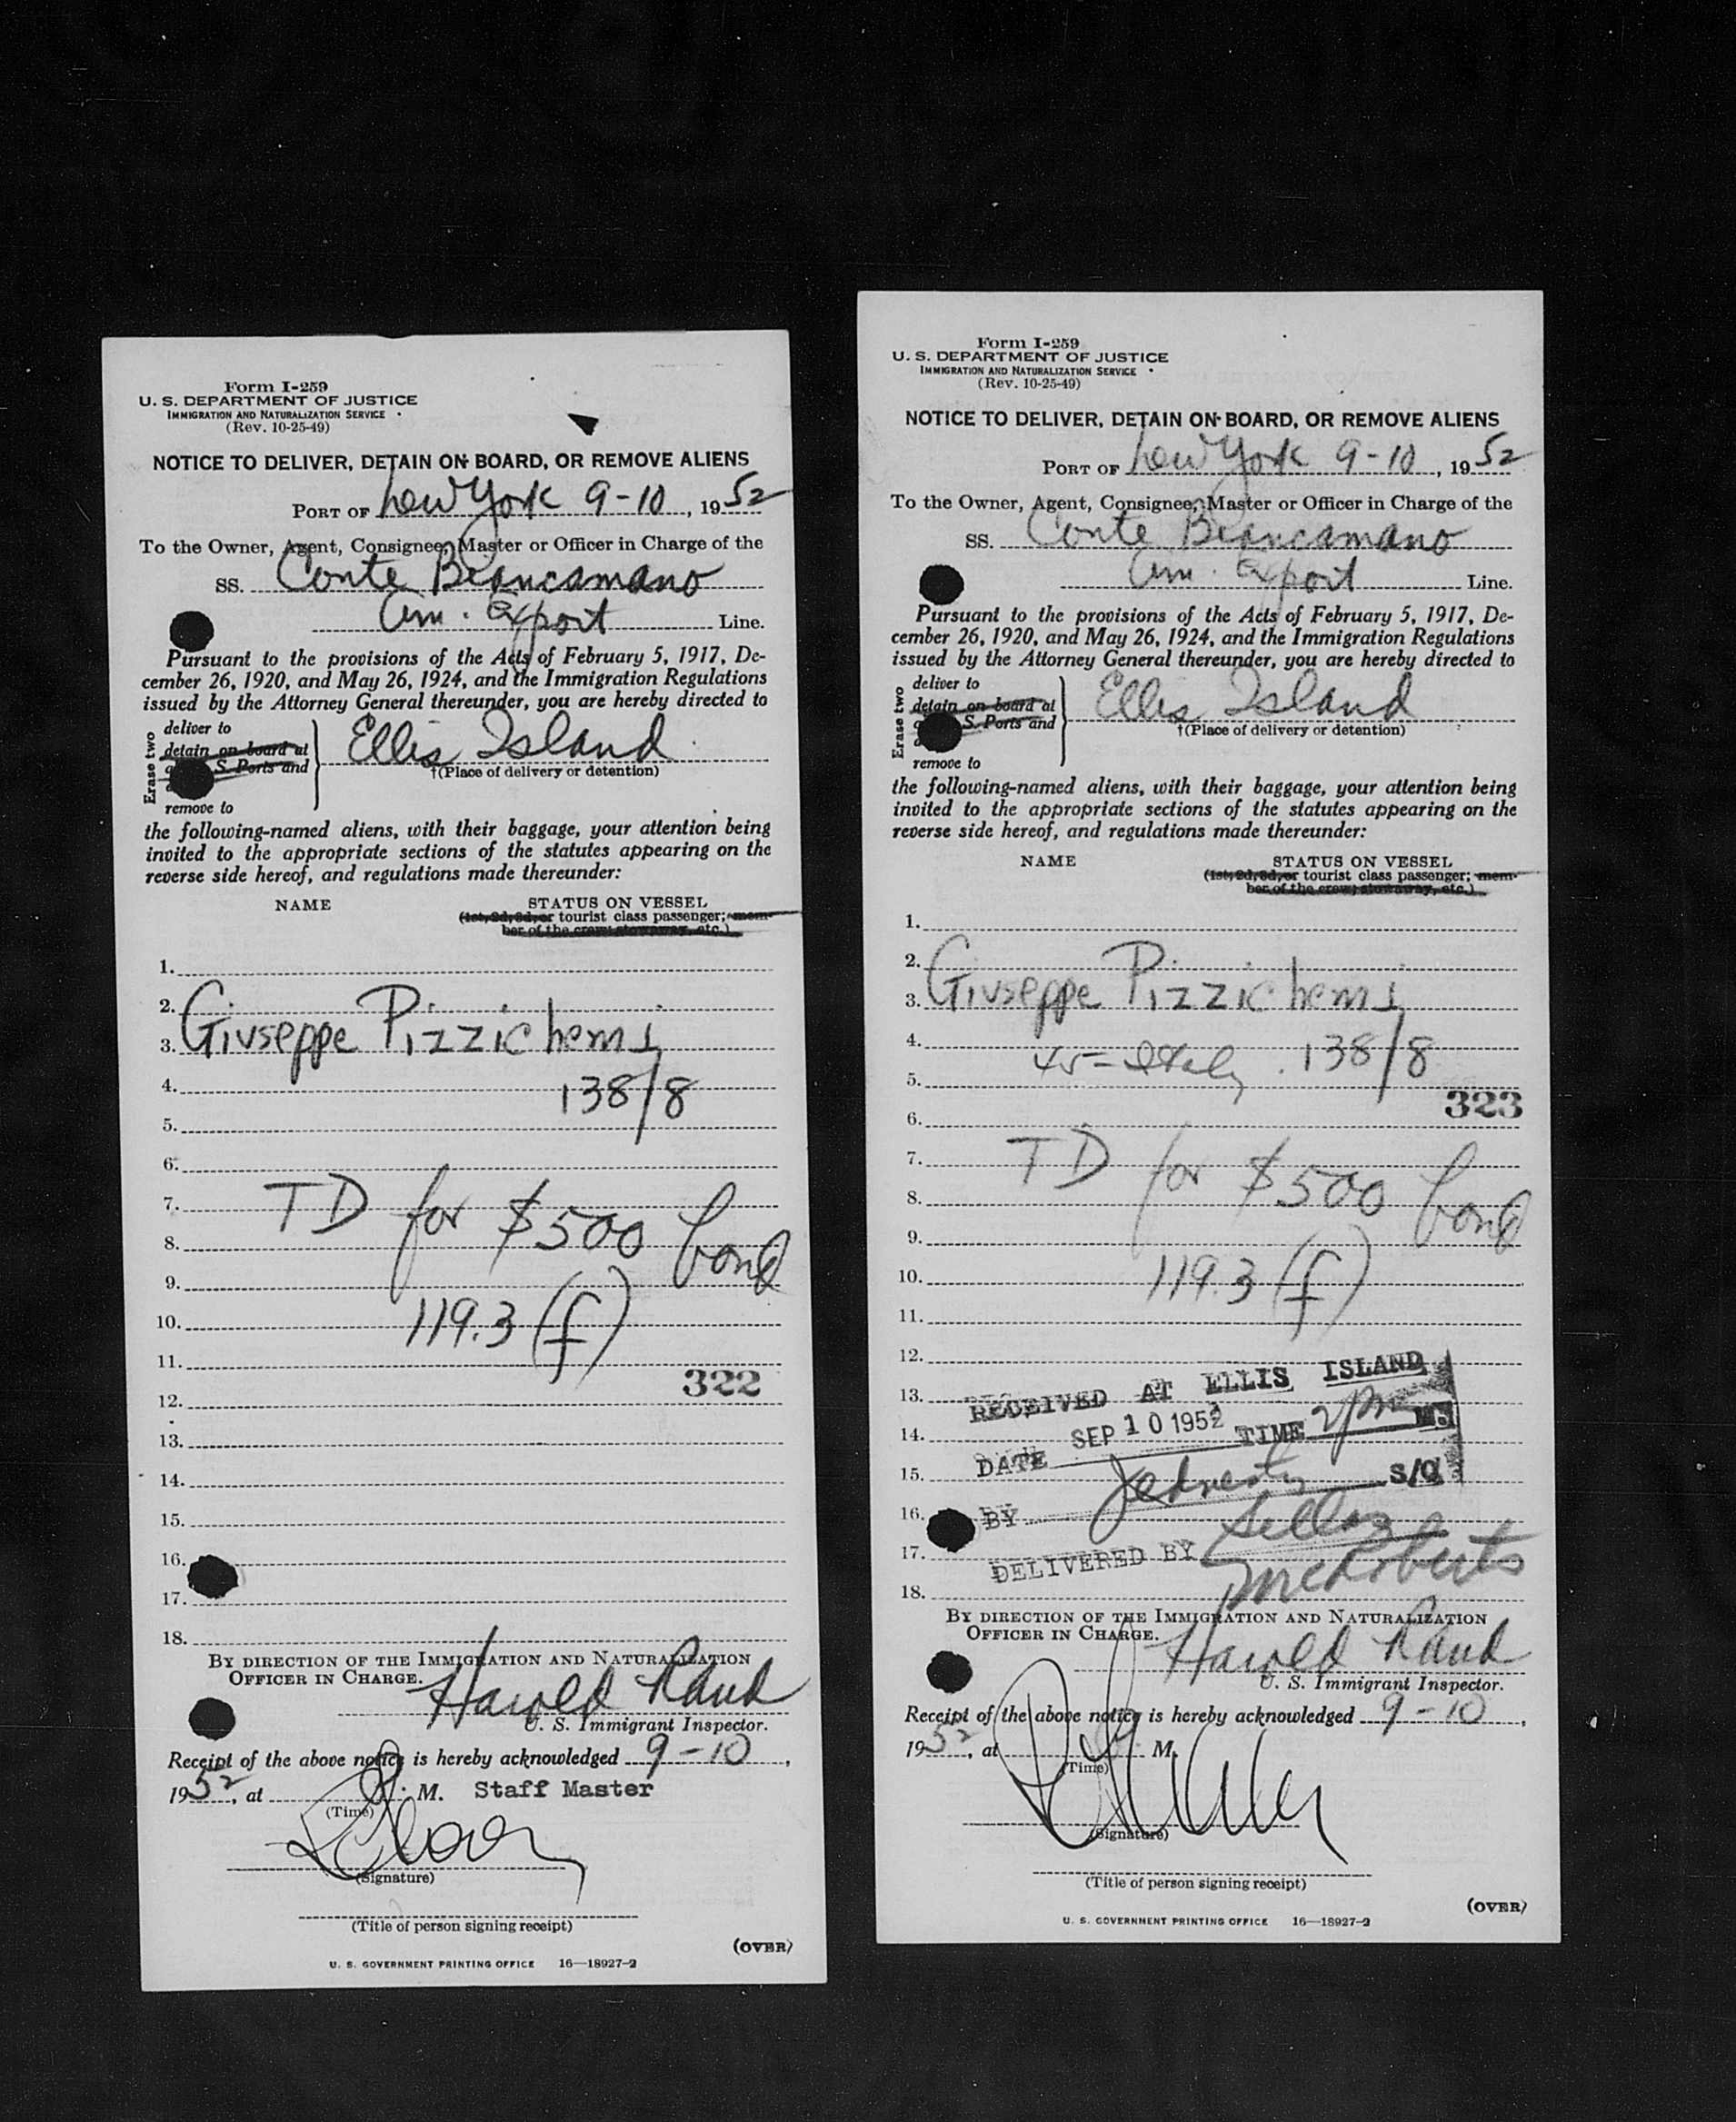 Form I-259
U. S. DEPARTMENT OF JUSTICE
IMMIGRATION AND NATURALIZATION SERVICE
(Rev. 10-25-49)
NOTICE TO DELIVER, DETAIN ON BOARD, OR REMOVE ALIENS
PORT OF New York 9-10, 1952
To the Owner, Agent, Consignee, Master or Officer in Charge of the
SS. Conte Biancamano
Am. Export Line.
Pursuant to the provisions of the Acts of February 5, 1917, De-
cember 26, 1920, and May 26, 1924, and the Immigration Regulations
issued by the Attorney General thereunder, you are hereby directed to
Erase two
deliver to
detain on board at
S. Ports and
remove to
Ellis Island
†(Place of delivery or detention)
the following-named aliens, with their baggage, your attention being
invited to the appropriate sections of the statutes appearing on the
reverse side hereof, and regulations made thereunder:
NAME STATUS ON VESSEL
(1st, 2d, 3d, or tourist class passenger; mem-
ber of the crew; stowaway, etc.)
1.
2.
3. Giuseppe Pizzichemi
4. 138/8
5.
6.
7. TD for $500 bond
8.
9.
10. 119.3 (f)
11.
322
12.
13.
14.
15.
16.
17.
18.
BY DIRECTION OF THE IMMIGRATION AND NATURALIZATION
OFFICER IN CHARGE.
Harold Rand
U. S. Immigrant Inspector.
Receipt of the above notice is hereby acknowledged 9-10,
1952, at M. Staff Master
(Time)
(Signature)
(Title of person signing receipt)
(OVER)
U. S. GOVERNMENT PRINTING OFFICE 16—18927-2
Form I-259
U. S. DEPARTMENT OF JUSTICE
IMMIGRATION AND NATURALIZATION SERVICE
(Rev. 10-25-49)
NOTICE TO DELIVER, DETAIN ON BOARD, OR REMOVE ALIENS
PORT OF New York 9-10, 1952
To the Owner, Agent, Consignee, Master or Officer in Charge of the
SS. Conte Biancamano
Am. Export Line.
Pursuant to the provisions of the Acts of February 5, 1917, De-
cember 26, 1920, and May 26, 1924, and the Immigration Regulations
issued by the Attorney General thereunder, you are hereby directed to
Erase two
deliver to
detain on board at
S. Ports and
remove to
Ellis Island
†(Place of delivery or detention)
the following-named aliens, with their baggage, your attention being
invited to the appropriate sections of the statutes appearing on the
reverse side hereof, and regulations made thereunder:
NAME STATUS ON VESSEL
(1st, 2d, 3d, or tourist class passenger; mem-
ber of the crew; stowaway, etc.)
1.
2.
3. Giuseppe Pizzichemi
4. 45 - Italy 138/8
5.
323
6.
7. TD for $500 bond
8.
9.
10. 119.3 (f)
11.
12.
13. RECEIVED AT ELLIS ISLAND
14. DATE SEP 10 1952 TIME 2 pm M.
15. S/O
16. BY
17. DELIVERED BY
McRoberts
18.
BY DIRECTION OF THE IMMIGRATION AND NATURALIZATION
OFFICER IN CHARGE.
Harold Rand
U. S. Immigrant Inspector.
Receipt of the above notice is hereby acknowledged 9-10,
1952, at M.
(Time)
(Signature)
(Title of person signing receipt)
(OVER)
U. S. GOVERNMENT PRINTING OFFICE 16—18927-2